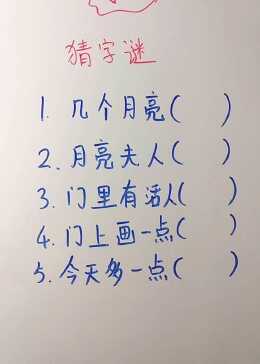 猜字谜
1. 几个月亮( )
2. 月亮夫人( )
3. 门里有活人( )
4. 门上画一点( )
5. 今天多一点( )